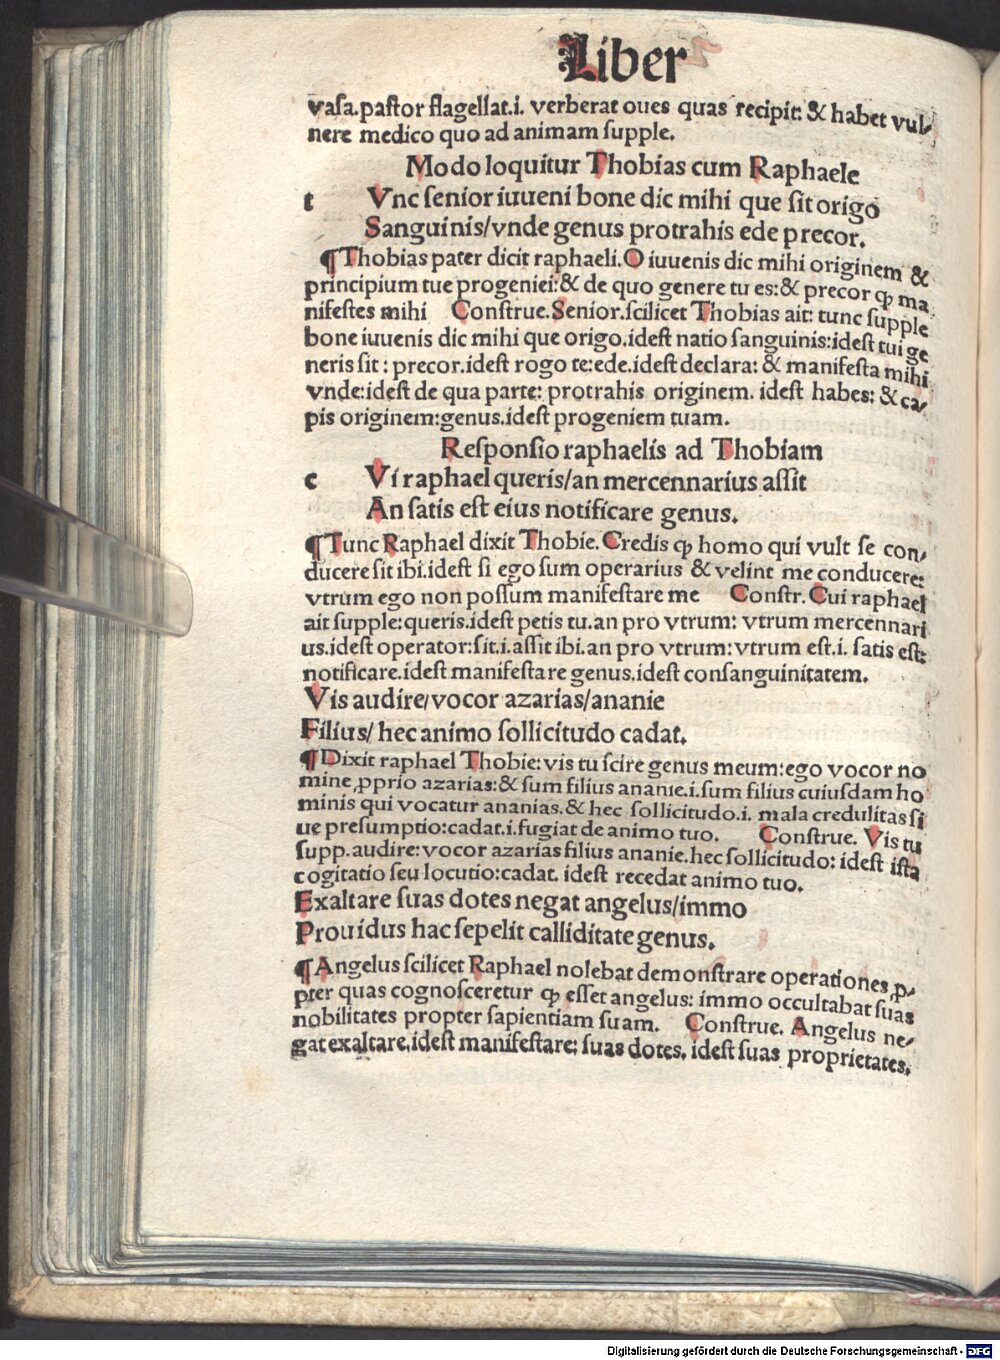 Liber
vaſa.paſtor flagellat.i. verberat oues quas recipit: & habet vul-
nere medico quo ad animam ſupple.
Modo loquitur Thobias cum Raphaele
t Vnc ſenior iuueni bone dic mihi que ſit origo
Sanguinis/vnde genus protrahis ede precor.
¶Thobias pater dicit raphaeli.O iuuenis dic mihi originem &
principium tue progeniei:& de quo genere tu es:& precor ꝙ ma
nifeſtes mihi Conſtrue.Senior.ſcilicet Thobias ait: tunc ſupple
bone iuuenis dic mihi que origo.ideſt natio ſanguinis:ideſt tui ge
neris ſit : precor.ideſt rogo te:ede.ideſt declara: & manifeſta mihi
vnde:ideſt de qua parte: protrahis originem. ideſt habes: & ca-
pis originem:genus.ideſt progeniem tuam.
Reſponſio raphaelis ad Thobiam
c Vi raphael queris/an mercennarius aſſit
An ſatis eſt eius notificare genus.
¶Tunc Raphael dixit Thobie.Credis ꝙ homo qui vult ſe con-
ducere ſit ibi.ideſt ſi ego ſum operarius & velint me conducere:
vtrum ego non poſſum manifeſtare me Conſtr. Cui raphael
ait ſupple:queris.ideſt petis tu.an pro vtrum: vtrum mercennari
us.ideſt operator:ſit.i.aſſit ibi.an pro vtrum:vtrum eſt.i. ſatis eſt:
notificare.ideſt manifeſtare genus.ideſt conſanguinitatem.
Vis audire/vocor azarias/ananie
Filius/ hec animo ſollicitudo cadat.
¶Dixit raphael Thobie:vis tu ſcire genus meum:ego vocor no
mine ꝓprio azarias:& ſum filius ananie.i.ſum filius cuiuſdam ho
minis qui vocatur ananias.& hec ſollicitudo.i. mala credulitas ſi
ue preſumptio:cadat.i.fugiat de animo tuo. Conſtrue. Vis tu
ſupp.audire:vocor azarias filius ananie.hec ſollicitudo: ideſt iſta
cogitatio ſeu locutio:cadat. ideſt recedat animo tuo.
Exaltare ſuas dotes negat angelus/immo
Prouidus hac ſepelit calliditate genus.
¶Angelus ſcilicet Raphael nolebat demonſtrare operationes ꝓ-
pter quas cognoſceretur ꝙ eſſet angelus: immo occultabat ſuas
nobilitates propter ſapientiam ſuam. Conſtrue. Angelus ne-
gat exaltare.ideſt manifeſtare: ſuas dotes. ideſt ſuas proprietates.
Digitalisierung gefördert durch die Deutsche Forschungsgemeinschaft - DFG